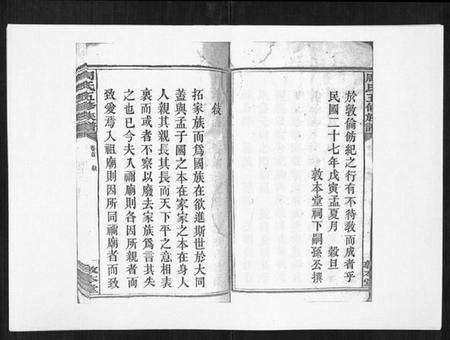 周氏五修族譜
於敦倫飭紀之行有不待教而成者乎
民國二十七年戊寅孟夏月 穀旦
敦本堂祠下嗣孫丕撰
敘
拓家族而爲國族在欲進斯世於大同
蓋與孟子國之本在家家之本在身人
人親其親長其長而天下平之意相表
裏而或者不察以廢去家族爲言其失
之也已今夫入禰廟則各因所親者而
致愛焉入祖廟則因所同禰廟者而致
周氏五修族譜
卷首 敘
敦本堂